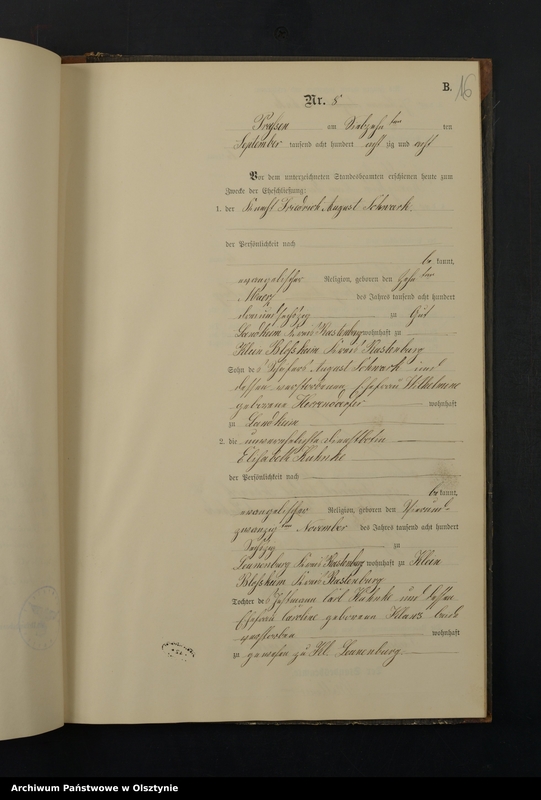 B. 16
Nr. 5
am Siebzehn ten
September tausend acht hundert acht zig und acht
Vor dem unterzeichneten Standesbeamten erschienen heute zum
Zwecke der Eheschließung:
1. der Knecht Friedrich August Schwark
der Persönlichkeit nach
be kannt,
evangelischer Religion, geboren den
Maerz des Jahres tausend acht hundert
drei und sechszig zu Gut
Landheim Kreis Rastenburg wohnhaft zu
Klein Bloßheim Kreis Rastenburg
Sohn des August Schwark und
dessen verstorbenen Ehefrau Wilhelmine
geborene wohnhaft
zu
2. die unverehelichte Dienstbotin
Elisabeth Kuhnke
der Persönlichkeit nach
be kannt,
evangelischer Religion, geboren den Vierund-
zwanzig ten November des Jahres tausend acht hundert
Sechszig zu
Kreis Rastenburg wohnhaft zu Klein
Bloßheim Kreis Rastenburg
Tochter des Instmann Carl Kuhnke und dessen
Ehefrau Caroline geborenen beide
verstorben wohnhaft
zu gewesen zu Kl.
Archiwum Państwowe w Olsztynie